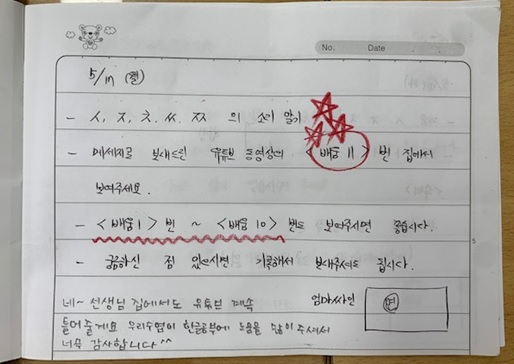 No. Date
5/17 (월)
- ㅅ, ㅈ, ㅊ, ㅆ, ㅉ 의 소리 알기
- 메세지로 보내드린 유튜브 동영상의 <배움 11> 번 집에서
보여주세요.
- <배움 1> 번 ~ <배움 10> 번도 보여주시면 좋습니다.
- 궁금하신 점 있으시면 기록해서 보내주셔도 됩니다.
네~ 선생님 집에서도 유튜브 계속 엄마싸인
틀어줄게요 우리수엽이 한글공부에 도움을 많이 주셔서
너무 감사합니다^^